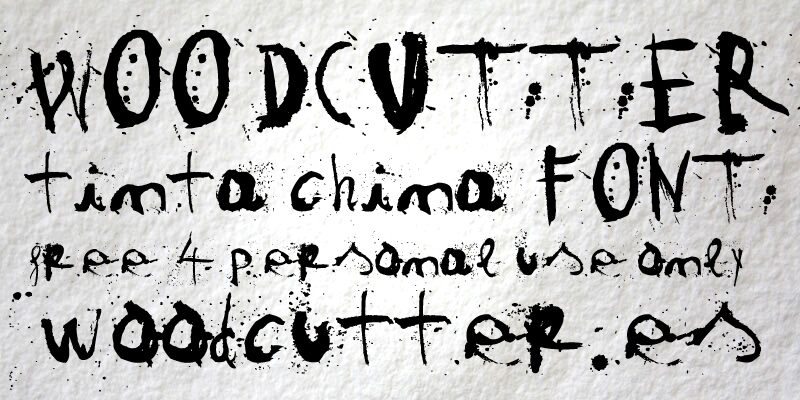 WOODCUTTER
tinta china FONT.
free 4 personal use only
woodcutter.es